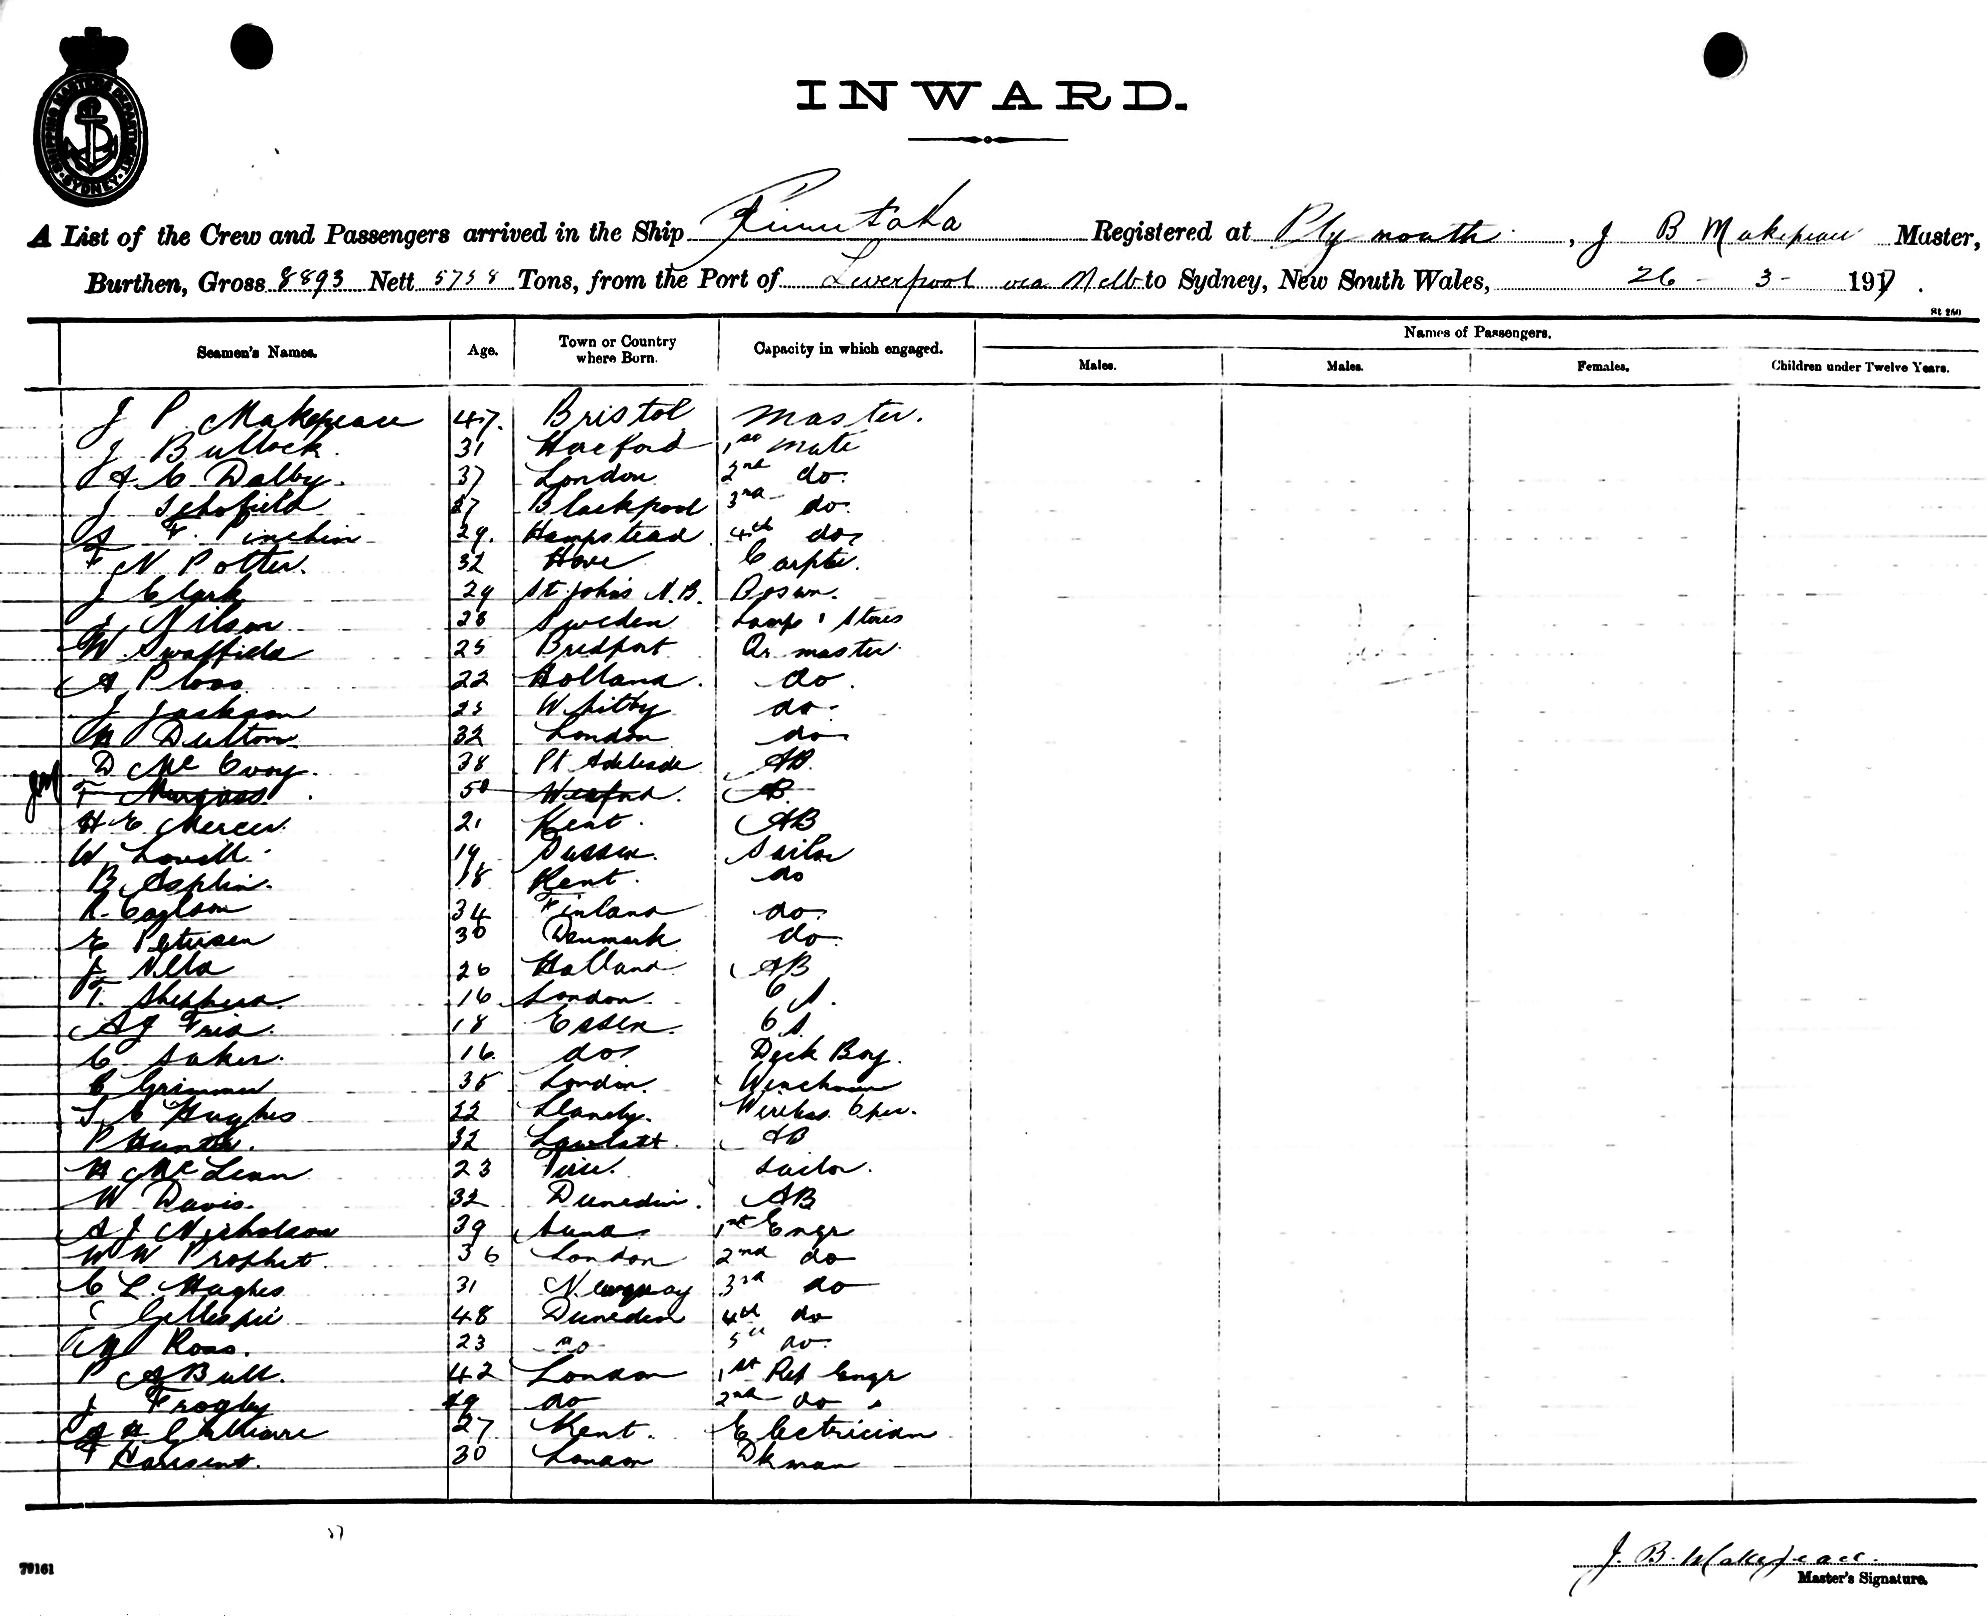 SHIPPING MASTER'S DEPARTMENT
SYDNEY
INWARD.
A List of the Crew and Passengers arrived in the Ship Rimutaka Registered at Plymouth, J B Makepeace Master,
Burthen, Gross 8893 Nett 5758 Tons, from the Port of Liverpool via Melb to Sydney, New South Wales, 26 - 3 - 1917.
St 260
Seamen's Names. Age. Town or Country where Born. Capacity in which engaged. Names of Passengers.
Males. Males. Females. Children under Twelve Years.
J P Makepeace 47. Bristol Master.
J Bullock 31 Hereford 1st Mate
A C Dalby. 37 London 2nd do.
J Schofield 27 Blackpool 3rd do.
F. Pinchin 29. Hampstead 4th do
F N Potter. 32 Hove Carptr.
J Clark 29 St Johns N.B. Bosun.
J Nilson 28 Sweden Lamps & Stores
W Swaffield 25 Bridport Qr master
A Ploos 22 Holland. do.
J Jackson 25 Whitby do.
H Dutton 32 London do
D McEvoy. 38 Pt Adelaide AB
T 50 Wexford. AB
H E Mercer. 21 Kent. AB
W Lovell. 19 Sussex. Sailor
B Asplin. 18 Kent. do
K. Carlson 34 Finland do.
E Petersen 30 Denmark do
J Nlla 26 Holland AB
T. Sheppard. 16 London. O S.
A J Frid. 18 Essex. O S.
C Saker. 16. do Deck Boy.
C Grimmer 35 London. Winchman
C Hughes 22 Llanely. Wireless Oper.
P Hunter. 32 AB
H McLean 23 Tiree. Sailor.
W Davis. 32 Dunedin. AB
A J Nicholson 39 1st Engr
W W Prophet. 36 London 2nd do
C L Hughes 31 Newquay 3rd do
Gillespie 48 Dunedin 4th do
M Ross. 23 do 5th do.
P A Bull. 42 London 1st Ref Engr
J Frogley 49 do 2nd do
A H 27 Kent. Electrician
F Harsent. 30 London Dkman
37
J. B. Makepeace.
Master's Signature.
79161